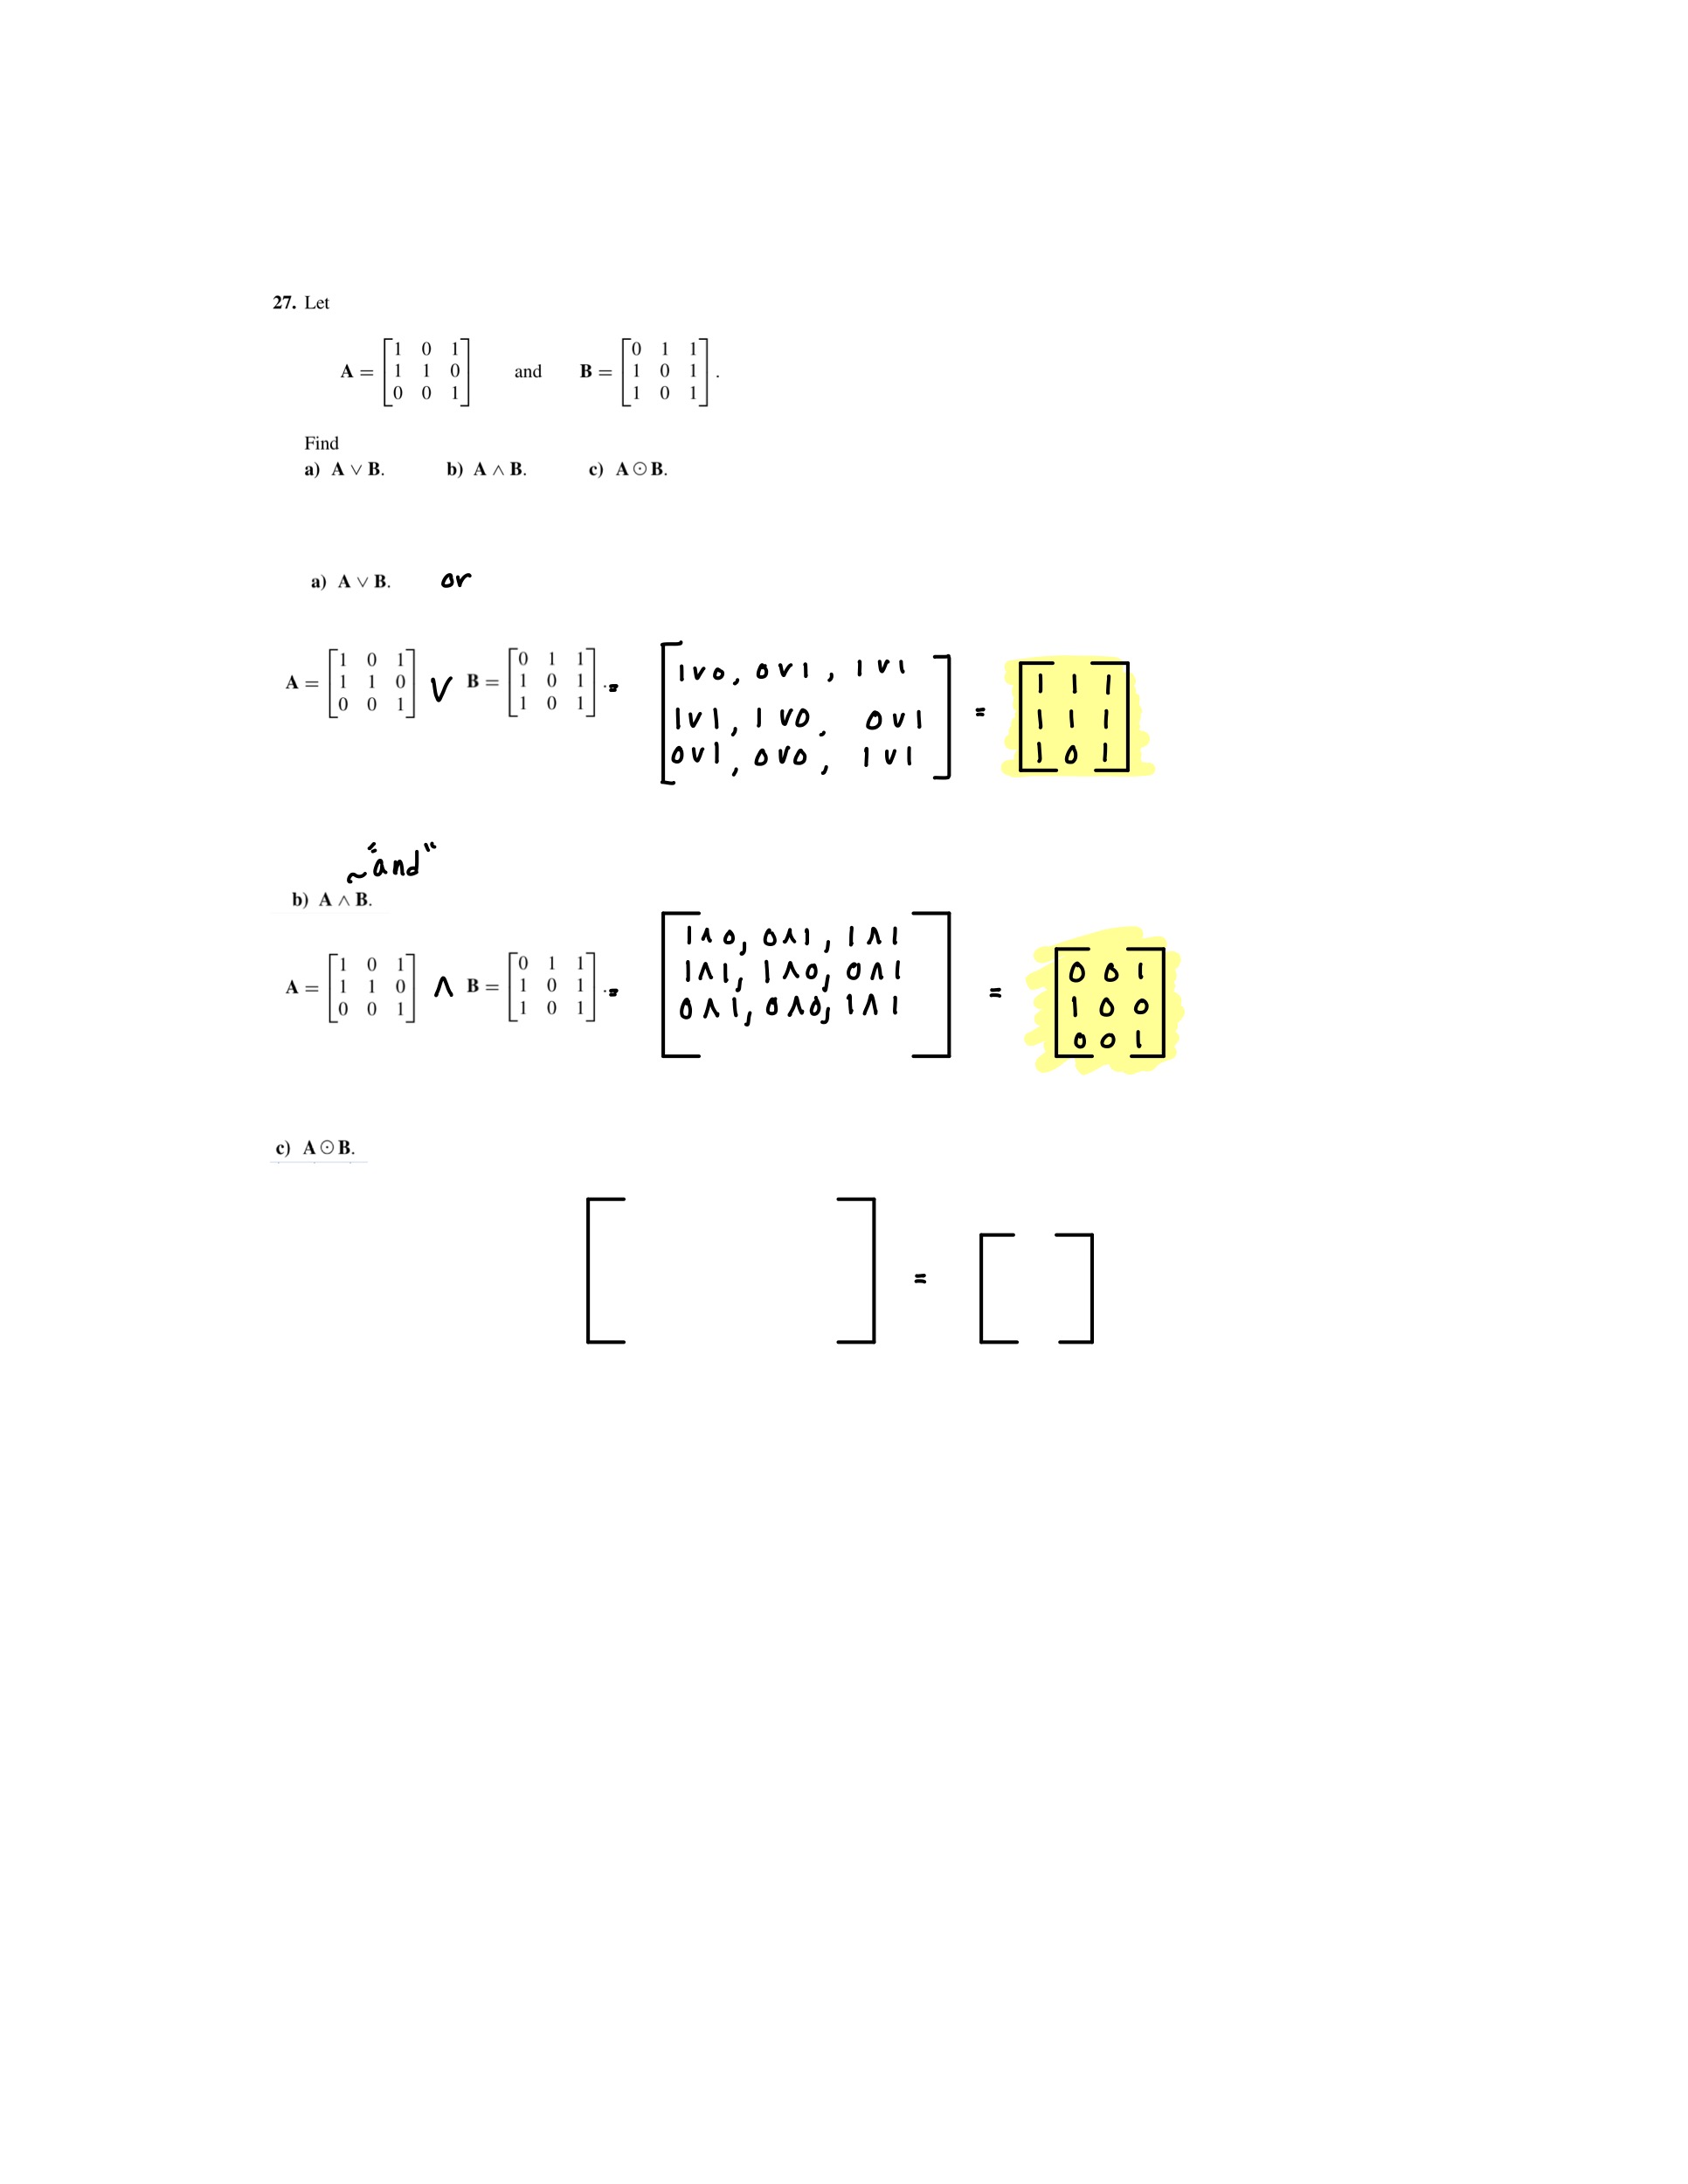 27. Let
A = [1 0 1
1 1 0
0 0 1] and B = [0 1 1
1 0 1
1 0 1].
Find
a) A ∨ B. b) A ∧ B. c) A ⊙ B.
a) A ∨ B. or
A = [1 0 1
1 1 0
0 0 1] ∨ B = [0 1 1
1 0 1
1 0 1]. = [1∨0, 0∨1, 1∨1
1∨1, 1∨0, 0∨1
0∨1, 0∨0, 1∨1] = [1 1 1
1 1 1
1 0 1]
~"and"
b) A ∧ B.
A = [1 0 1
1 1 0
0 0 1] ∧ B = [0 1 1
1 0 1
1 0 1]. = [1∧0, 0∧1, 1∧1
1∧1, 1∧0, 0∧1
0∧1, 0∧0, 1∧1] = [0 0 1
1 0 0
0 0 1]
c) A ⊙ B.
[ ] = [ ]